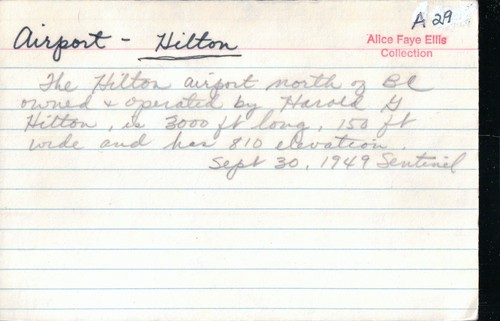 A 29
Airport - Hilton
Alice Faye Ellis
Collection
The Hilton airport north of BC
owned & operated by Harold G
Hilton, is 3000 ft long, 150 ft
wide and has 810 elevation.
Sept 30, 1949 Sentinel